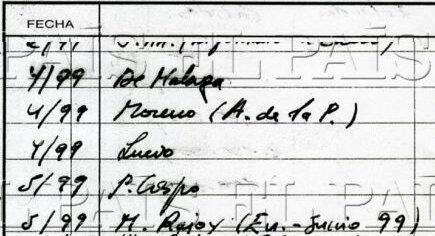 FECHA
4/99 De Malaga
4/99 Moreno (A. de la P.)
4/99 Lucio
5/99 P. Crespo
5/99 M. Rajoy (En.-Junio 99)
EL PAÍS